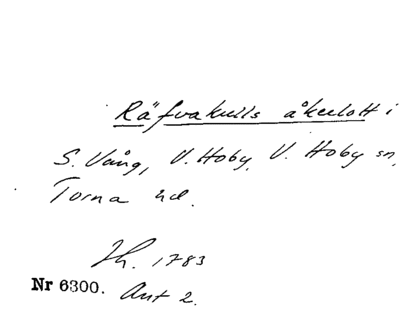 Räfvakulls åkerlott i
S. Vång, V. Hoby, V. Hoby sn,
Torna hd.
Jh. 1783
Nr 6300. Akt 2.